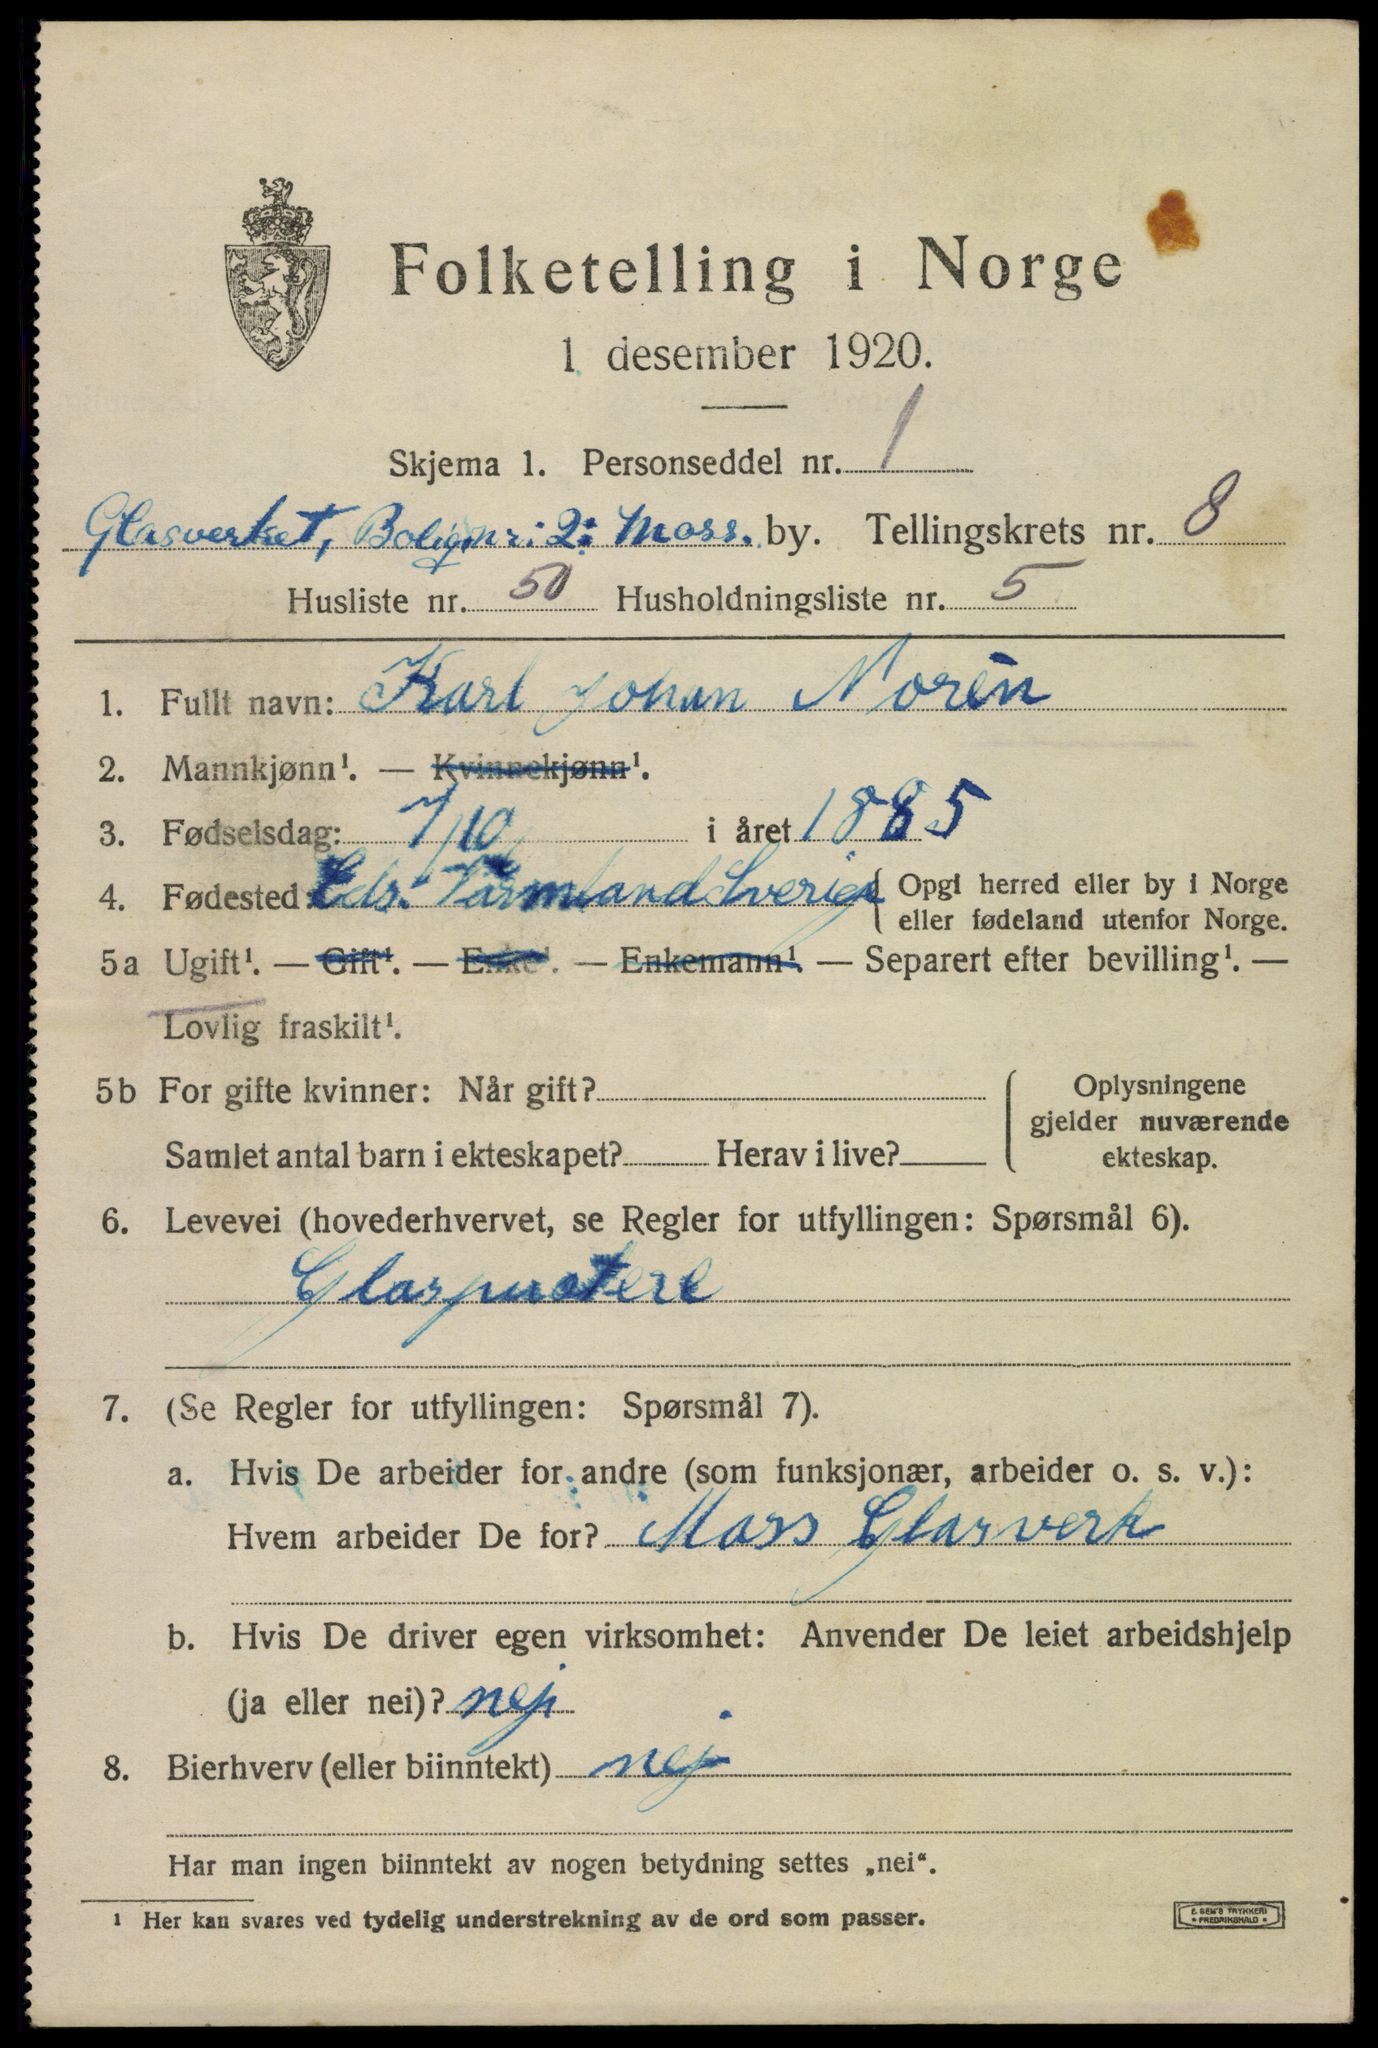 Folketelling i Norge
1 desember 1920.
Skjema 1. Personseddel nr. 1
Glasverket, Bolignr: 2: Moss. by. Tellingskrets nr. 8
Husliste nr. 50 Husholdningsliste nr. 5
1. Fullt navn: Karl Johan Norén
2. Mannkjønn¹. — Kvinnekjønn¹.
3. Fødselsdag: 7/10 i året 1885
4. Fødested: Eds. Värmland Sverige { Opgi herred eller by i Norge
eller fødeland utenfor Norge.
5a Ugift¹. — Gift¹. — Enke¹. — Enkemann¹. — Separert efter bevilling¹. —
Lovlig fraskilt¹.
5b For gifte kvinner: Når gift? { Oplysningene
gjelder nuværende
Samlet antal barn i ekteskapet? Herav i live? ekteskap.
6. Levevei (hovederhvervet, se Regler for utfyllingen: Spørsmål 6).
7. (Se Regler for utfyllingen: Spørsmål 7).
a. Hvis De arbeider for andre (som funksjonær, arbeider o. s. v.):
Hvem arbeider De for? Moss Glasverk
b. Hvis De driver egen virksomhet: Anvender De leiet arbeidshjelp
(ja eller nei)? neji
8. Bierhverv (eller biinntekt) nej
Har man ingen biinntekt av nogen betydning settes „nei“.
¹ Her kan svares ved tydelig understrekning av de ord som passer.
E. SEM'S TRYKKERI
* FREDRIKSHALD *